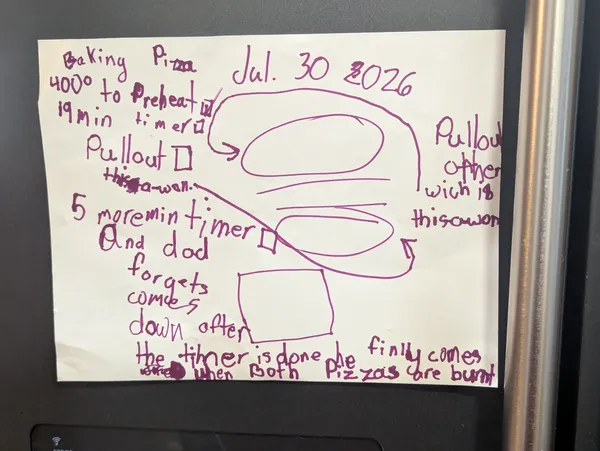 Baking Pizza
Jul. 30 2026
400° to Preheat
19 min timer
Pullout
this-a-won.
5 more min timer
And dad
forgets
comes
down after
the tihmer is done he finlly comes
when Both Pizzas are burnt
Pullout
other
wich is
thisawon